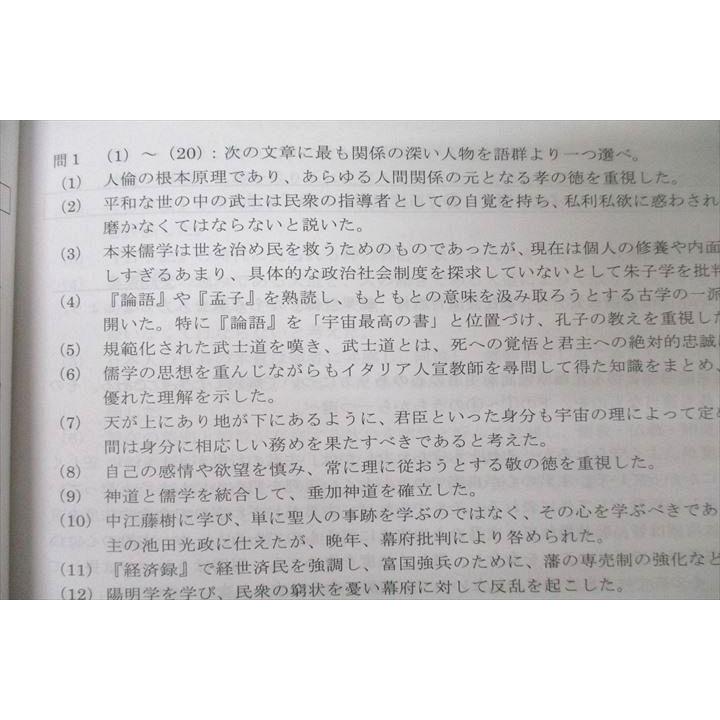 問1 (1) ～ (20) : 次の文章に最も関係の深い人物を語群より一つ選べ。
(1) 人倫の根本原理であり、あらゆる人間関係の元となる孝の徳を重視した。
(2) 平和な世の中の武士は民衆の指導者としての自覚を持ち、私利私欲に惑わされ
磨かなくてはならないと説いた。
(3) 本来儒学は世を治め民を救うためのものであったが、現在は個人の修養や内面
しすぎるあまり、具体的な政治社会制度を探求していないとして朱子学を批判
(4) 『論語』や『孟子』を熟読し、もともとの意味を汲み取ろうとする古学の一派
開いた。特に『論語』を「宇宙最高の書」と位置づけ、孔子の教えを重視した
(5) 規範化された武士道を嘆き、武士道とは、死への覚悟と君主への絶対的忠誠
(6) 儒学の思想を重んじながらもイタリア人宣教師を尋問して得た知識をまとめ、
優れた理解を示した。
(7) 天が上にあり地が下にあるように、君臣といった身分も宇宙の理によって定め
間は身分に相応しい務めを果たすべきであると考えた。
(8) 自己の感情や欲望を慎み、常に理に従おうとする敬の徳を重視した。
(9) 神道と儒学を統合して、垂加神道を確立した。
(10) 中江藤樹に学び、単に聖人の事跡を学ぶのではなく、その心を学ぶべきであ
主の池田光政に仕えたが、晩年、幕府批判により咎められた。
(11) 『経済録』で経世済民を強調し、富国強兵のために、藩の専売制の強化など
(12) 陽明学を学び、民衆の窮状を憂い幕府に対して反乱を起こした。